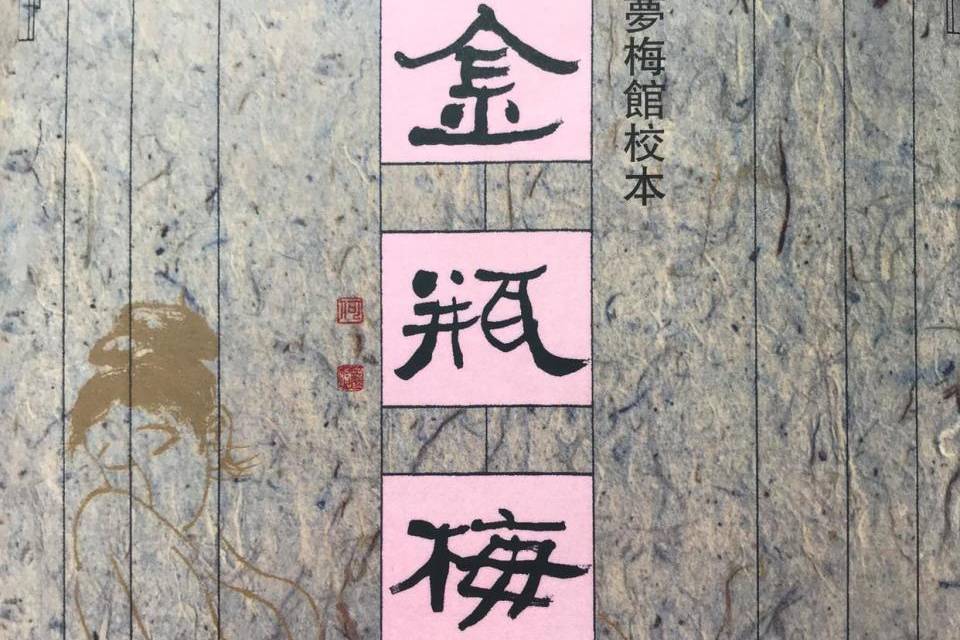 夢梅館校本
金瓶梅